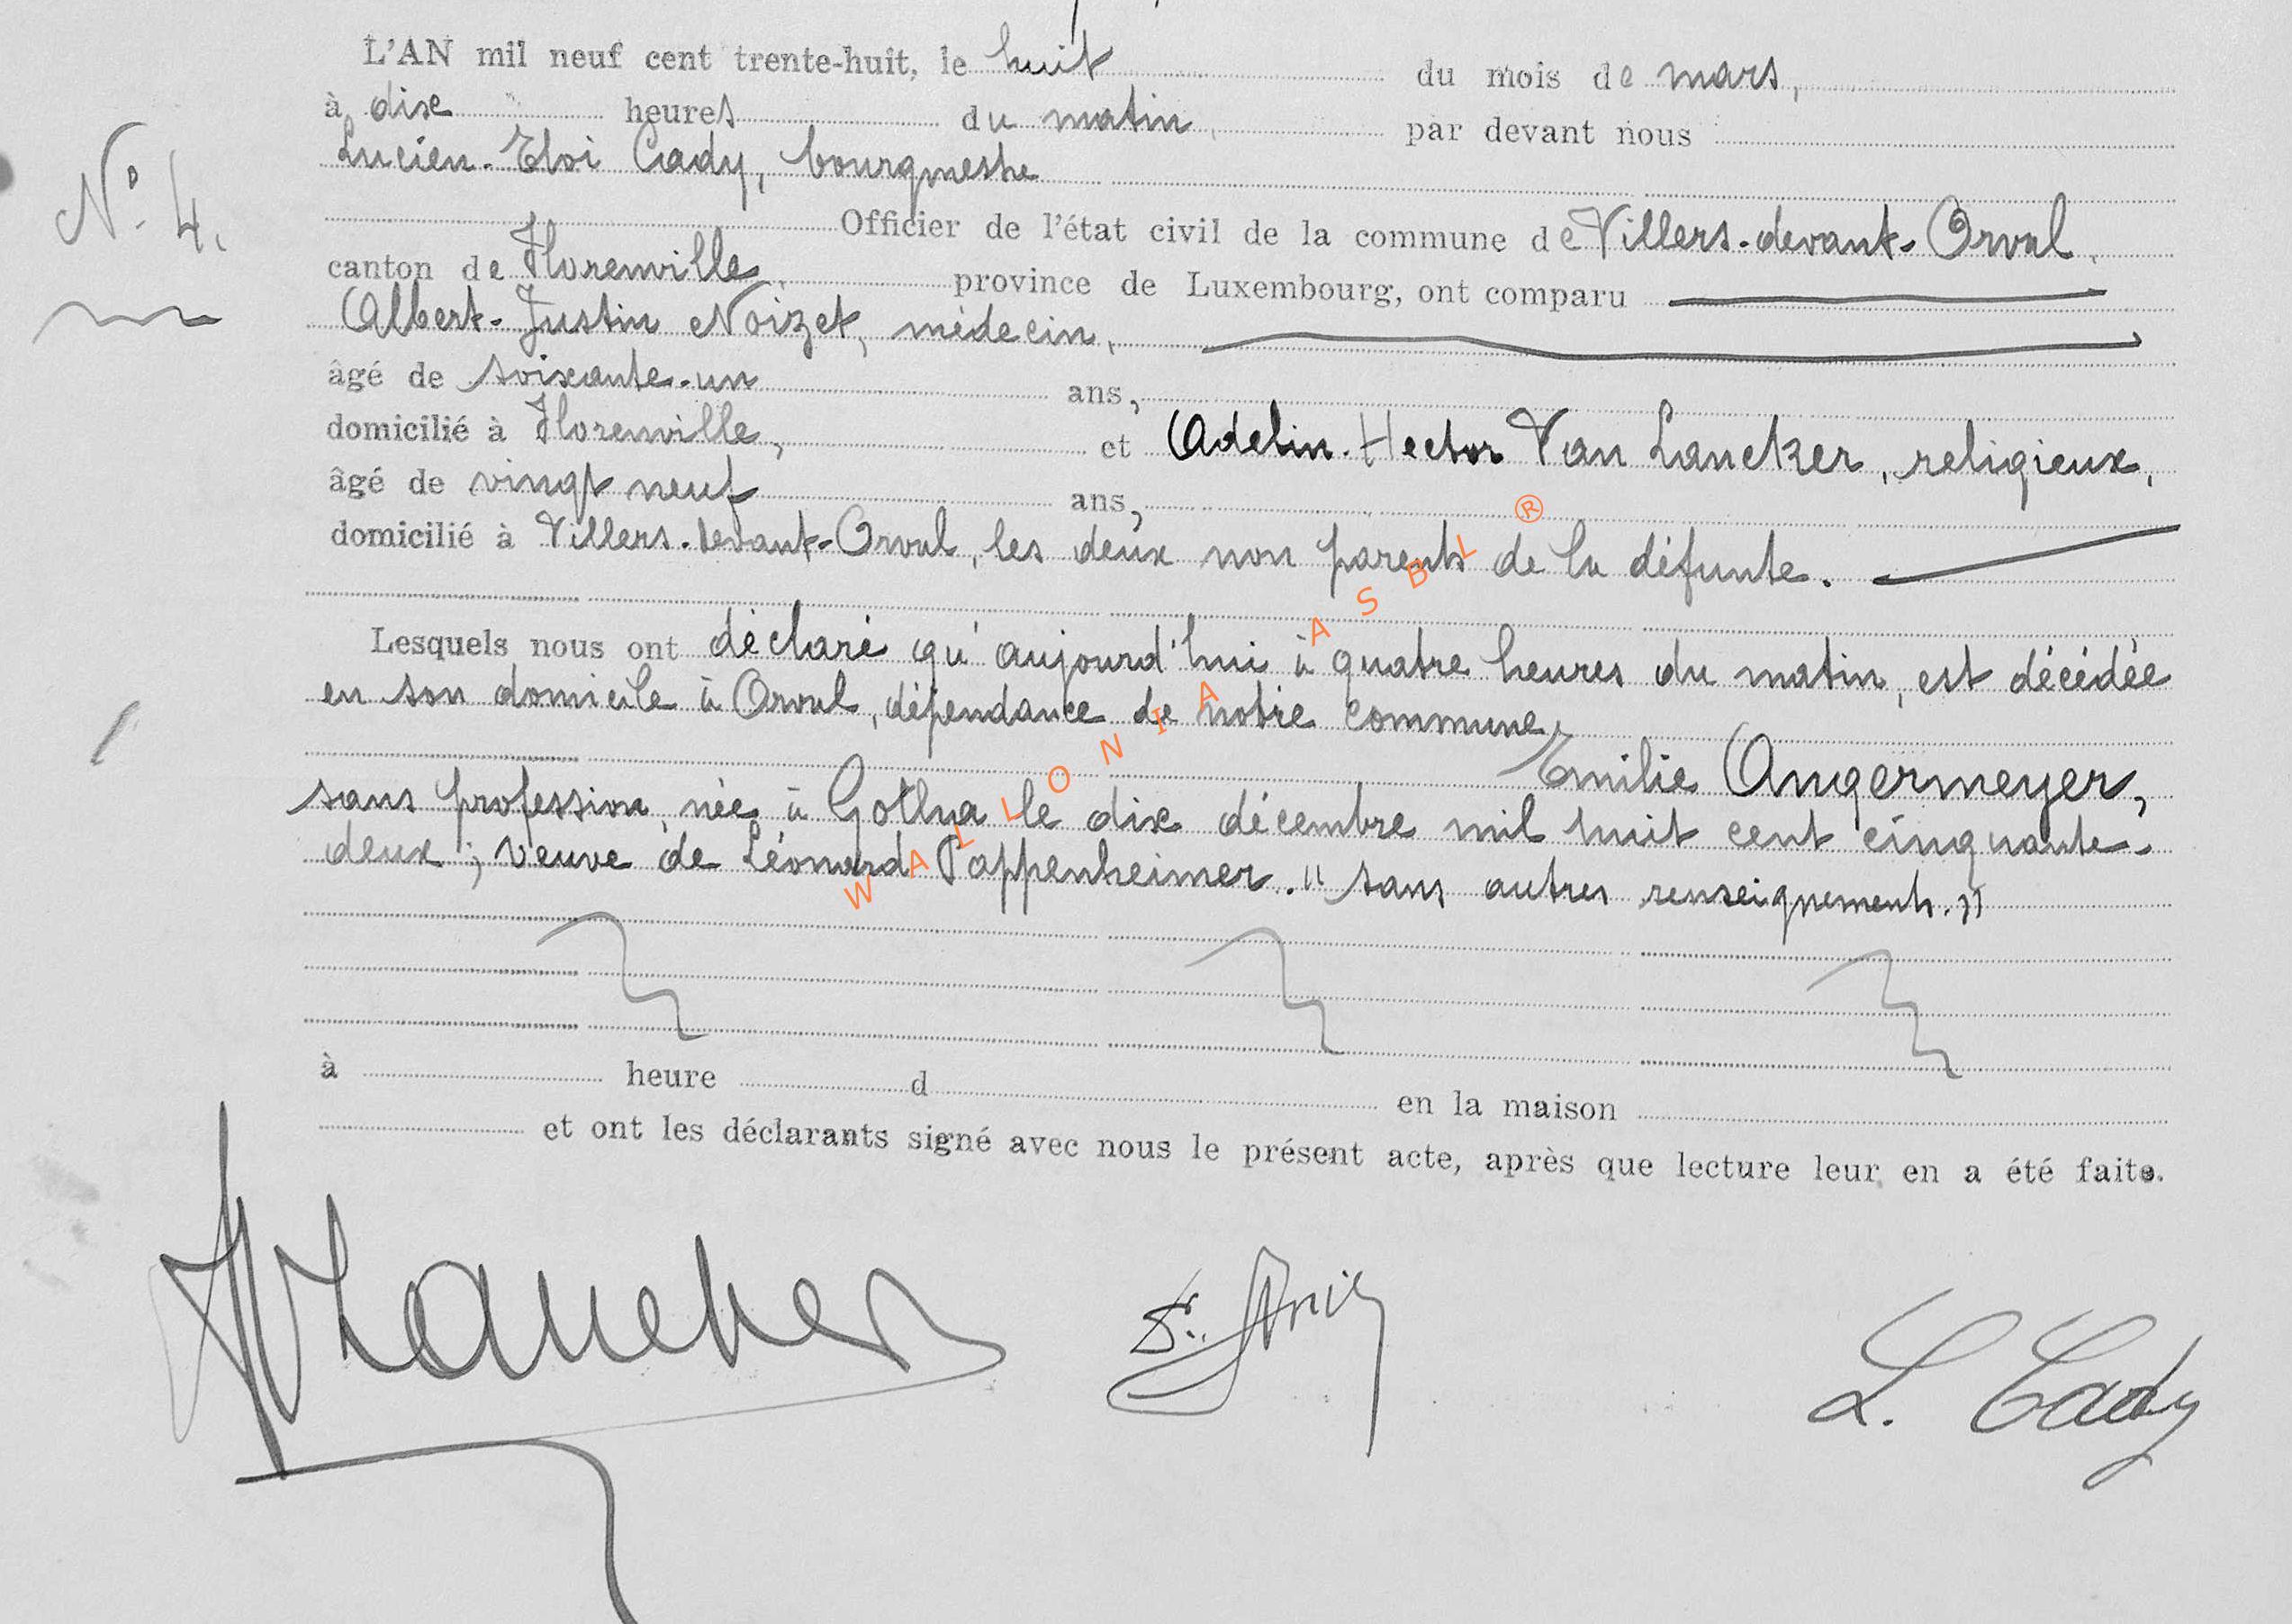 L'AN mil neuf cent trente-huit, le huit du mois de mars,
à dix heures du matin, par devant nous
Lucien-Eloi Cady, bourgmestre
Officier de l'état civil de la commune de Villers-devant-Orval,
canton de Florenville, province de Luxembourg, ont comparu
Albert-Justin Noizet, médecin,
âgé de soixante-un ans,
domicilié à Florenville, et Adelin-Hector Van Lancker, religieux,
âgé de vingt neuf ans,
domicilié à Villers-devant-Orval, les deux non parents de la défunte.
Lesquels nous ont déclaré qu'aujourd'hui à quatre heures du matin, est décédée
en son domicile à Orval, dépendance de notre commune
Emilie Angermeyer,
sans profession, née à Gotha le dix décembre mil huit cent cinquante-
deux; veuve de Léonard Pappenheimer. "sans autres renseignements."
à heure d en la maison
et ont les déclarants signé avec nous le présent acte, après que lecture leur en a été faite.
Nº 4.
WALLONIA ASBL ®
L. Cady